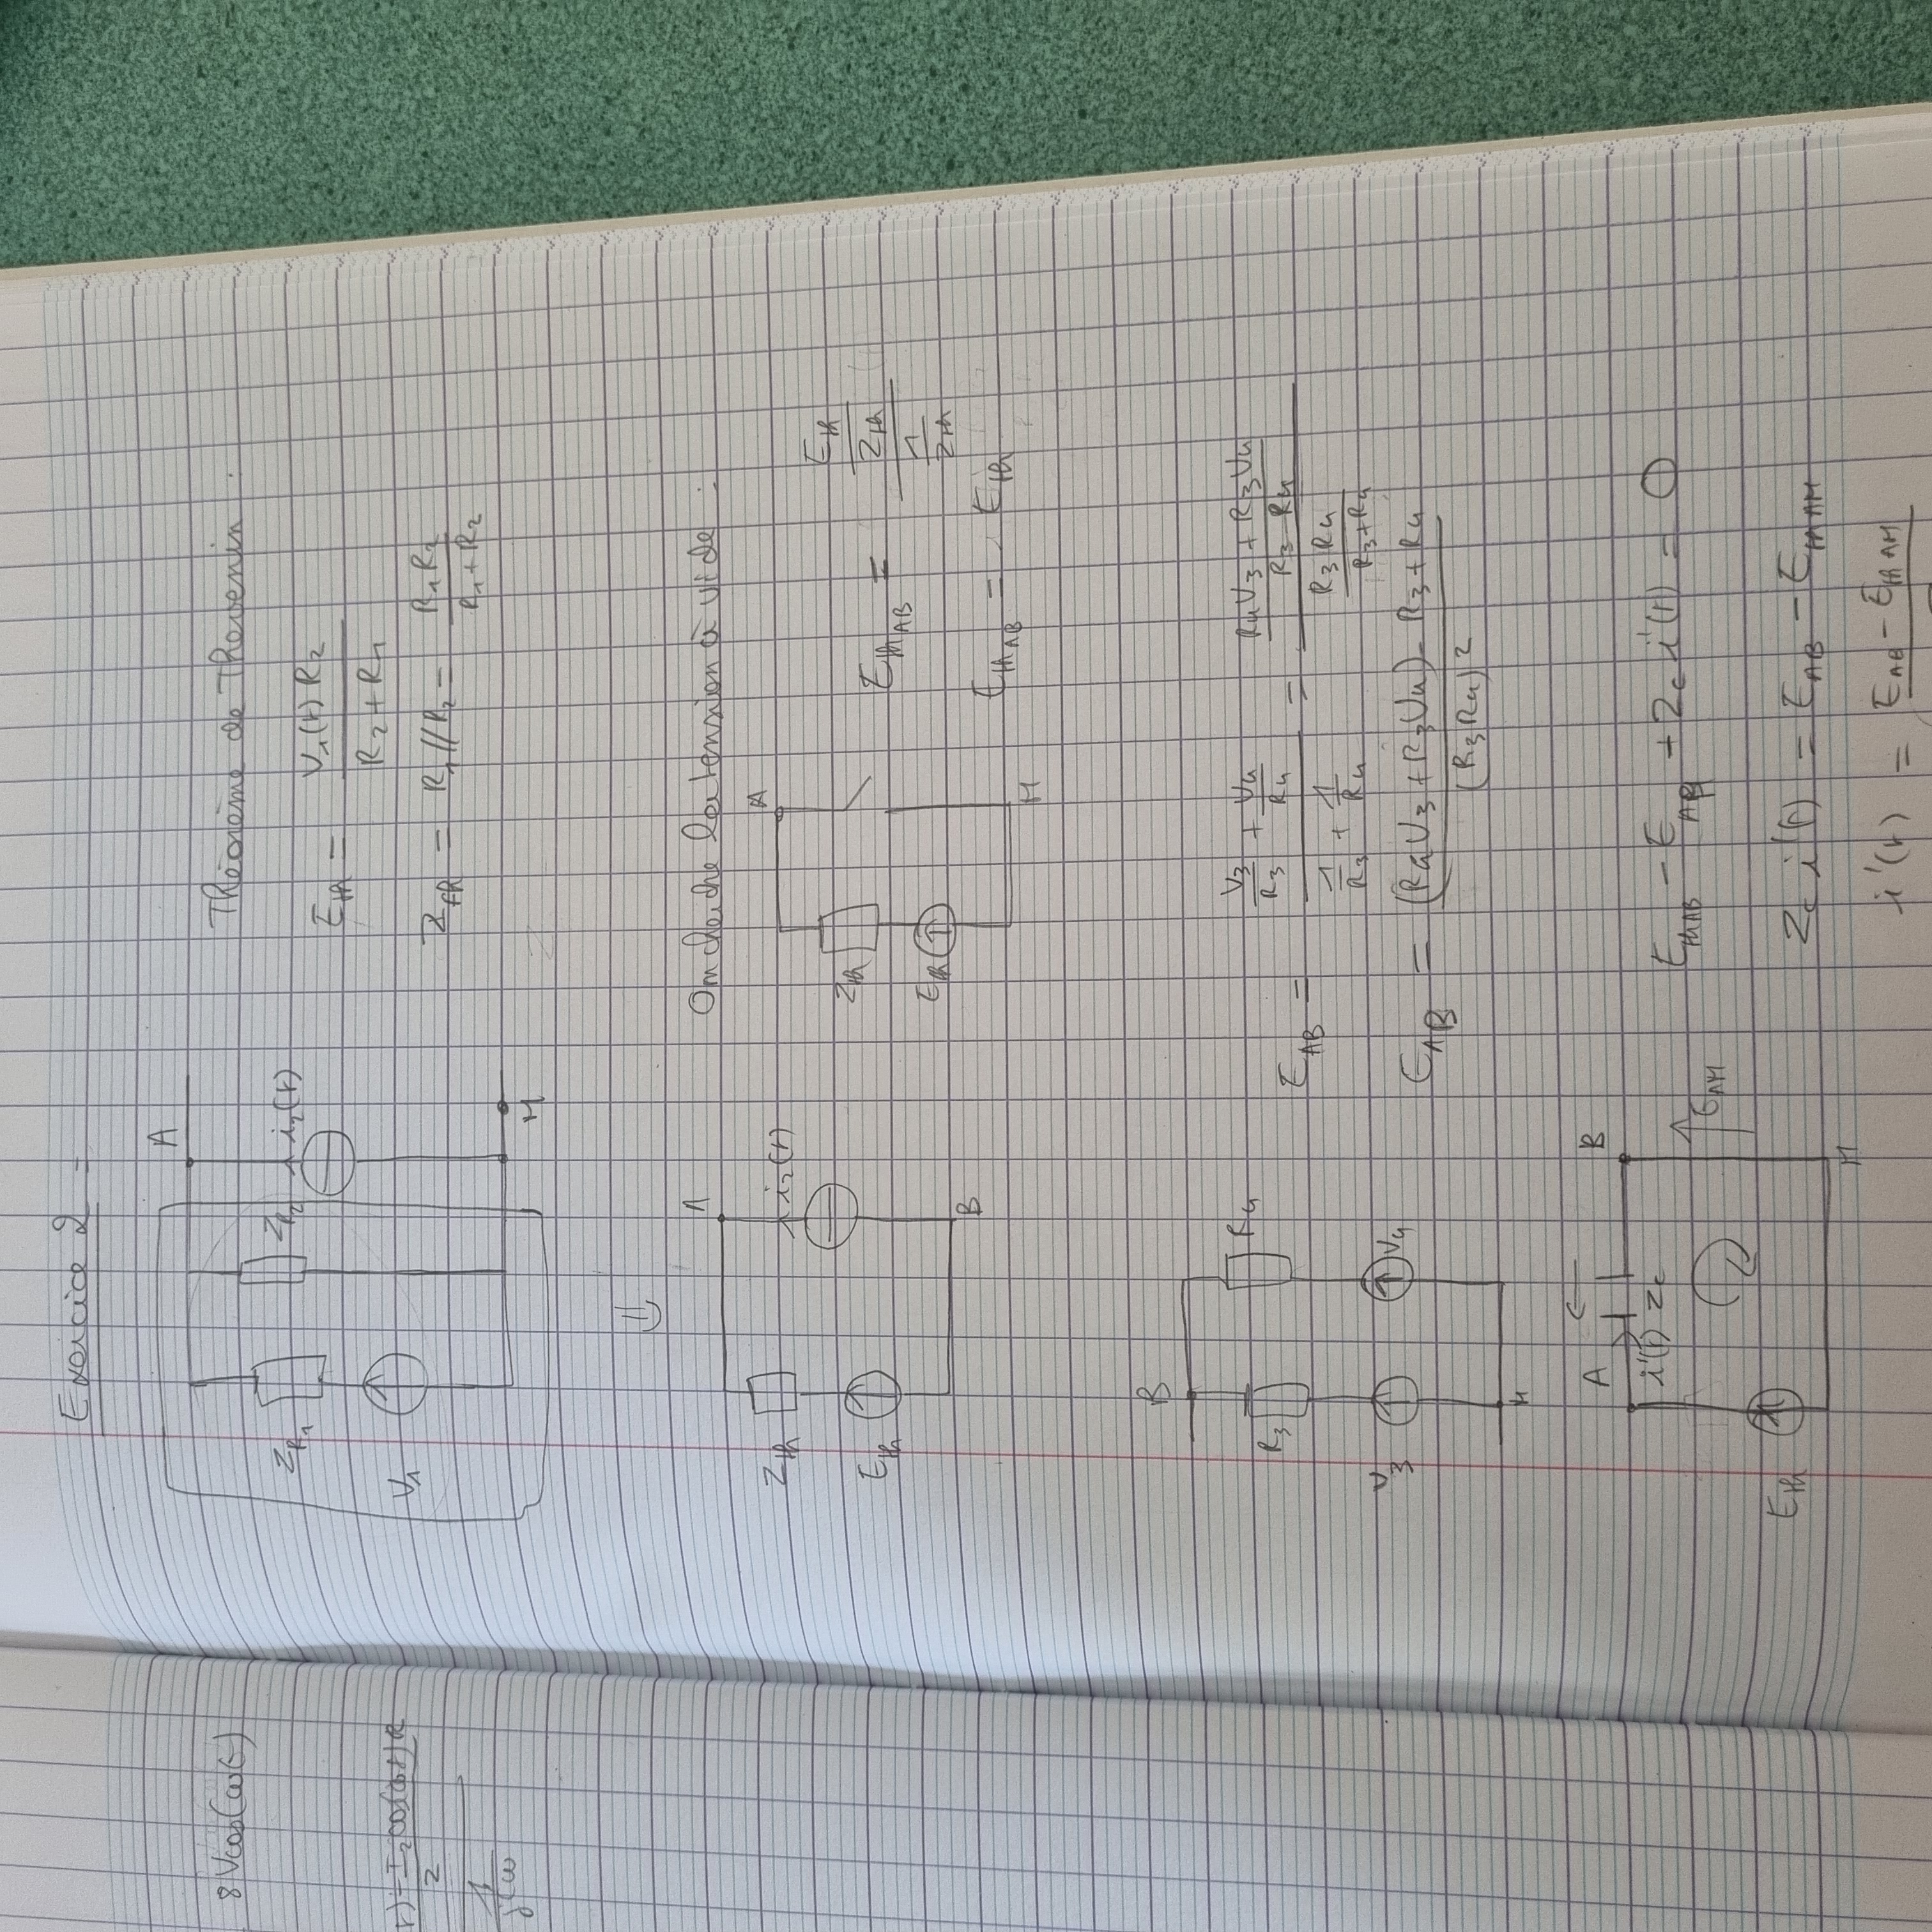 Exercice 2 -
A
Z_R1
Z_R2
i_2(t)
V_1
M
Théorème de Thevenin :
E_th = V_1(t) R_2 / (R_2 + R_1)
Z_th = R_1 // R_2 = R_1 R_2 / (R_1 + R_2)
A
Z_th
i_2(t)
E_th
B
On cherche la tension à vide :
A
Z_th
E_th
M
E_thAB = (E_th / Z_th) / (1 / Z_th)
E_thAB = E_th
B
R_3
R_4
V_3
V_4
M
E_AB = (V_3/R_3 + V_4/R_4) / (1/R_3 + 1/R_4) = ((R_4V_3 + R_3V_4) / (R_3 R_4)) / (R_3R_4 / (R_3+R_4))
E_AB = (R_4V_3 + R_3V_4) R_3 + R_4 / (R_3R_4)^2
A
B
i'(t) Z_c
E_th
E_AM
M
E_thAB - E_AB + Z_c i'(t) = 0
Z_c i'(t) = E_AB - E_thAM
i'(t) = E_AB - E_thAM
8 V cos(ωt)
I_2 cos(ωt) R
2
1
jω